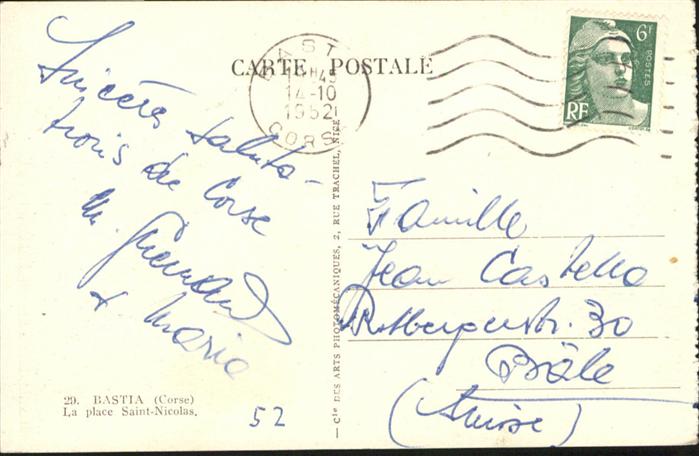 CARTE POSTALE
BASTIA
14-10
1952
CORSE
6F
POSTES
RF
Sincères saluta-
tions de Corse
M.
+ Maria
Famille
Jean Castella
30
Bâle
(Suisse)
— Cie DES ARTS PHOTOMÉCANIQUES, 2, RUE TRACHEL, NICE
29. BASTIA (Corse)
La place Saint-Nicolas.
52